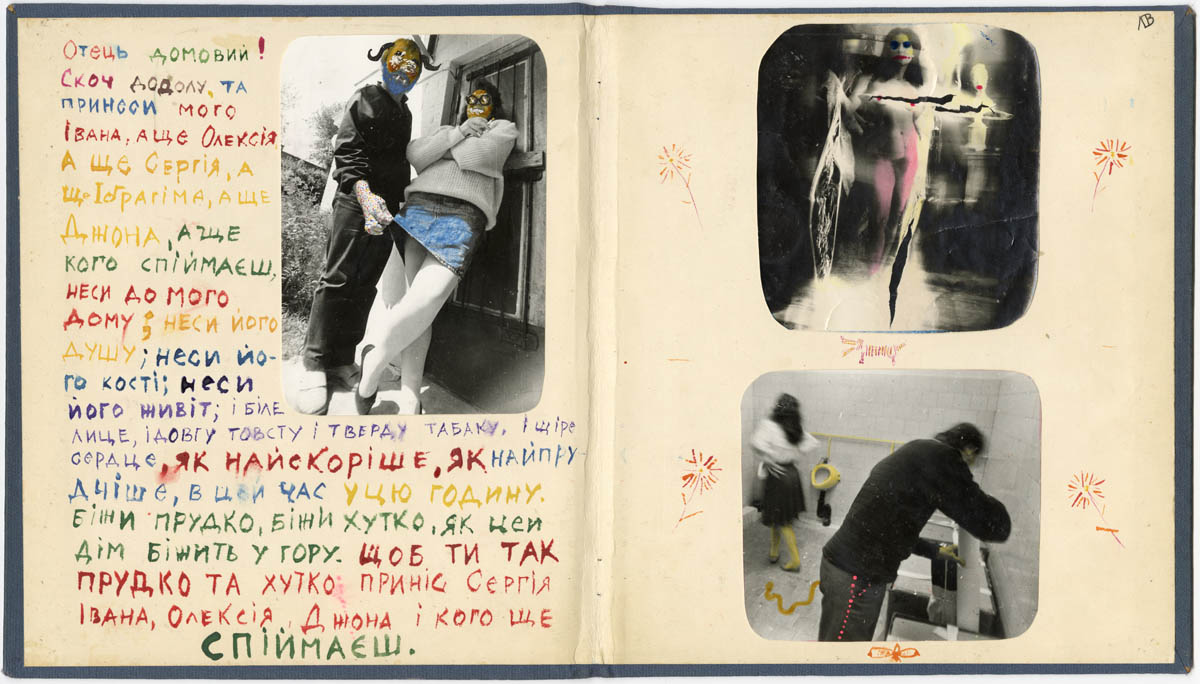 Отець домовий!
Скоч додолу, та
приноси мого
Івана, а ще Олексія
А ще Сергія, а
ще Ібрагіма, а ще
Джона, а ще
кого спіймаєш,
неси до мого
дому; неси його
душу; неси йо-
го кості; неси
його живіт; і біле
лице, і довгу товсту і тверду табаку. І щіре
сердце, як найскоріше, як найпру
дчіше, в цей час у цю годину.
Біжи прудко, біжи хутко, як цей
дім біжить у гору. Щоб ти так
прудко та хутко приніс Сергія
Івана, Олексія, Джона і кого ще
спіймаєш.
ЛВ